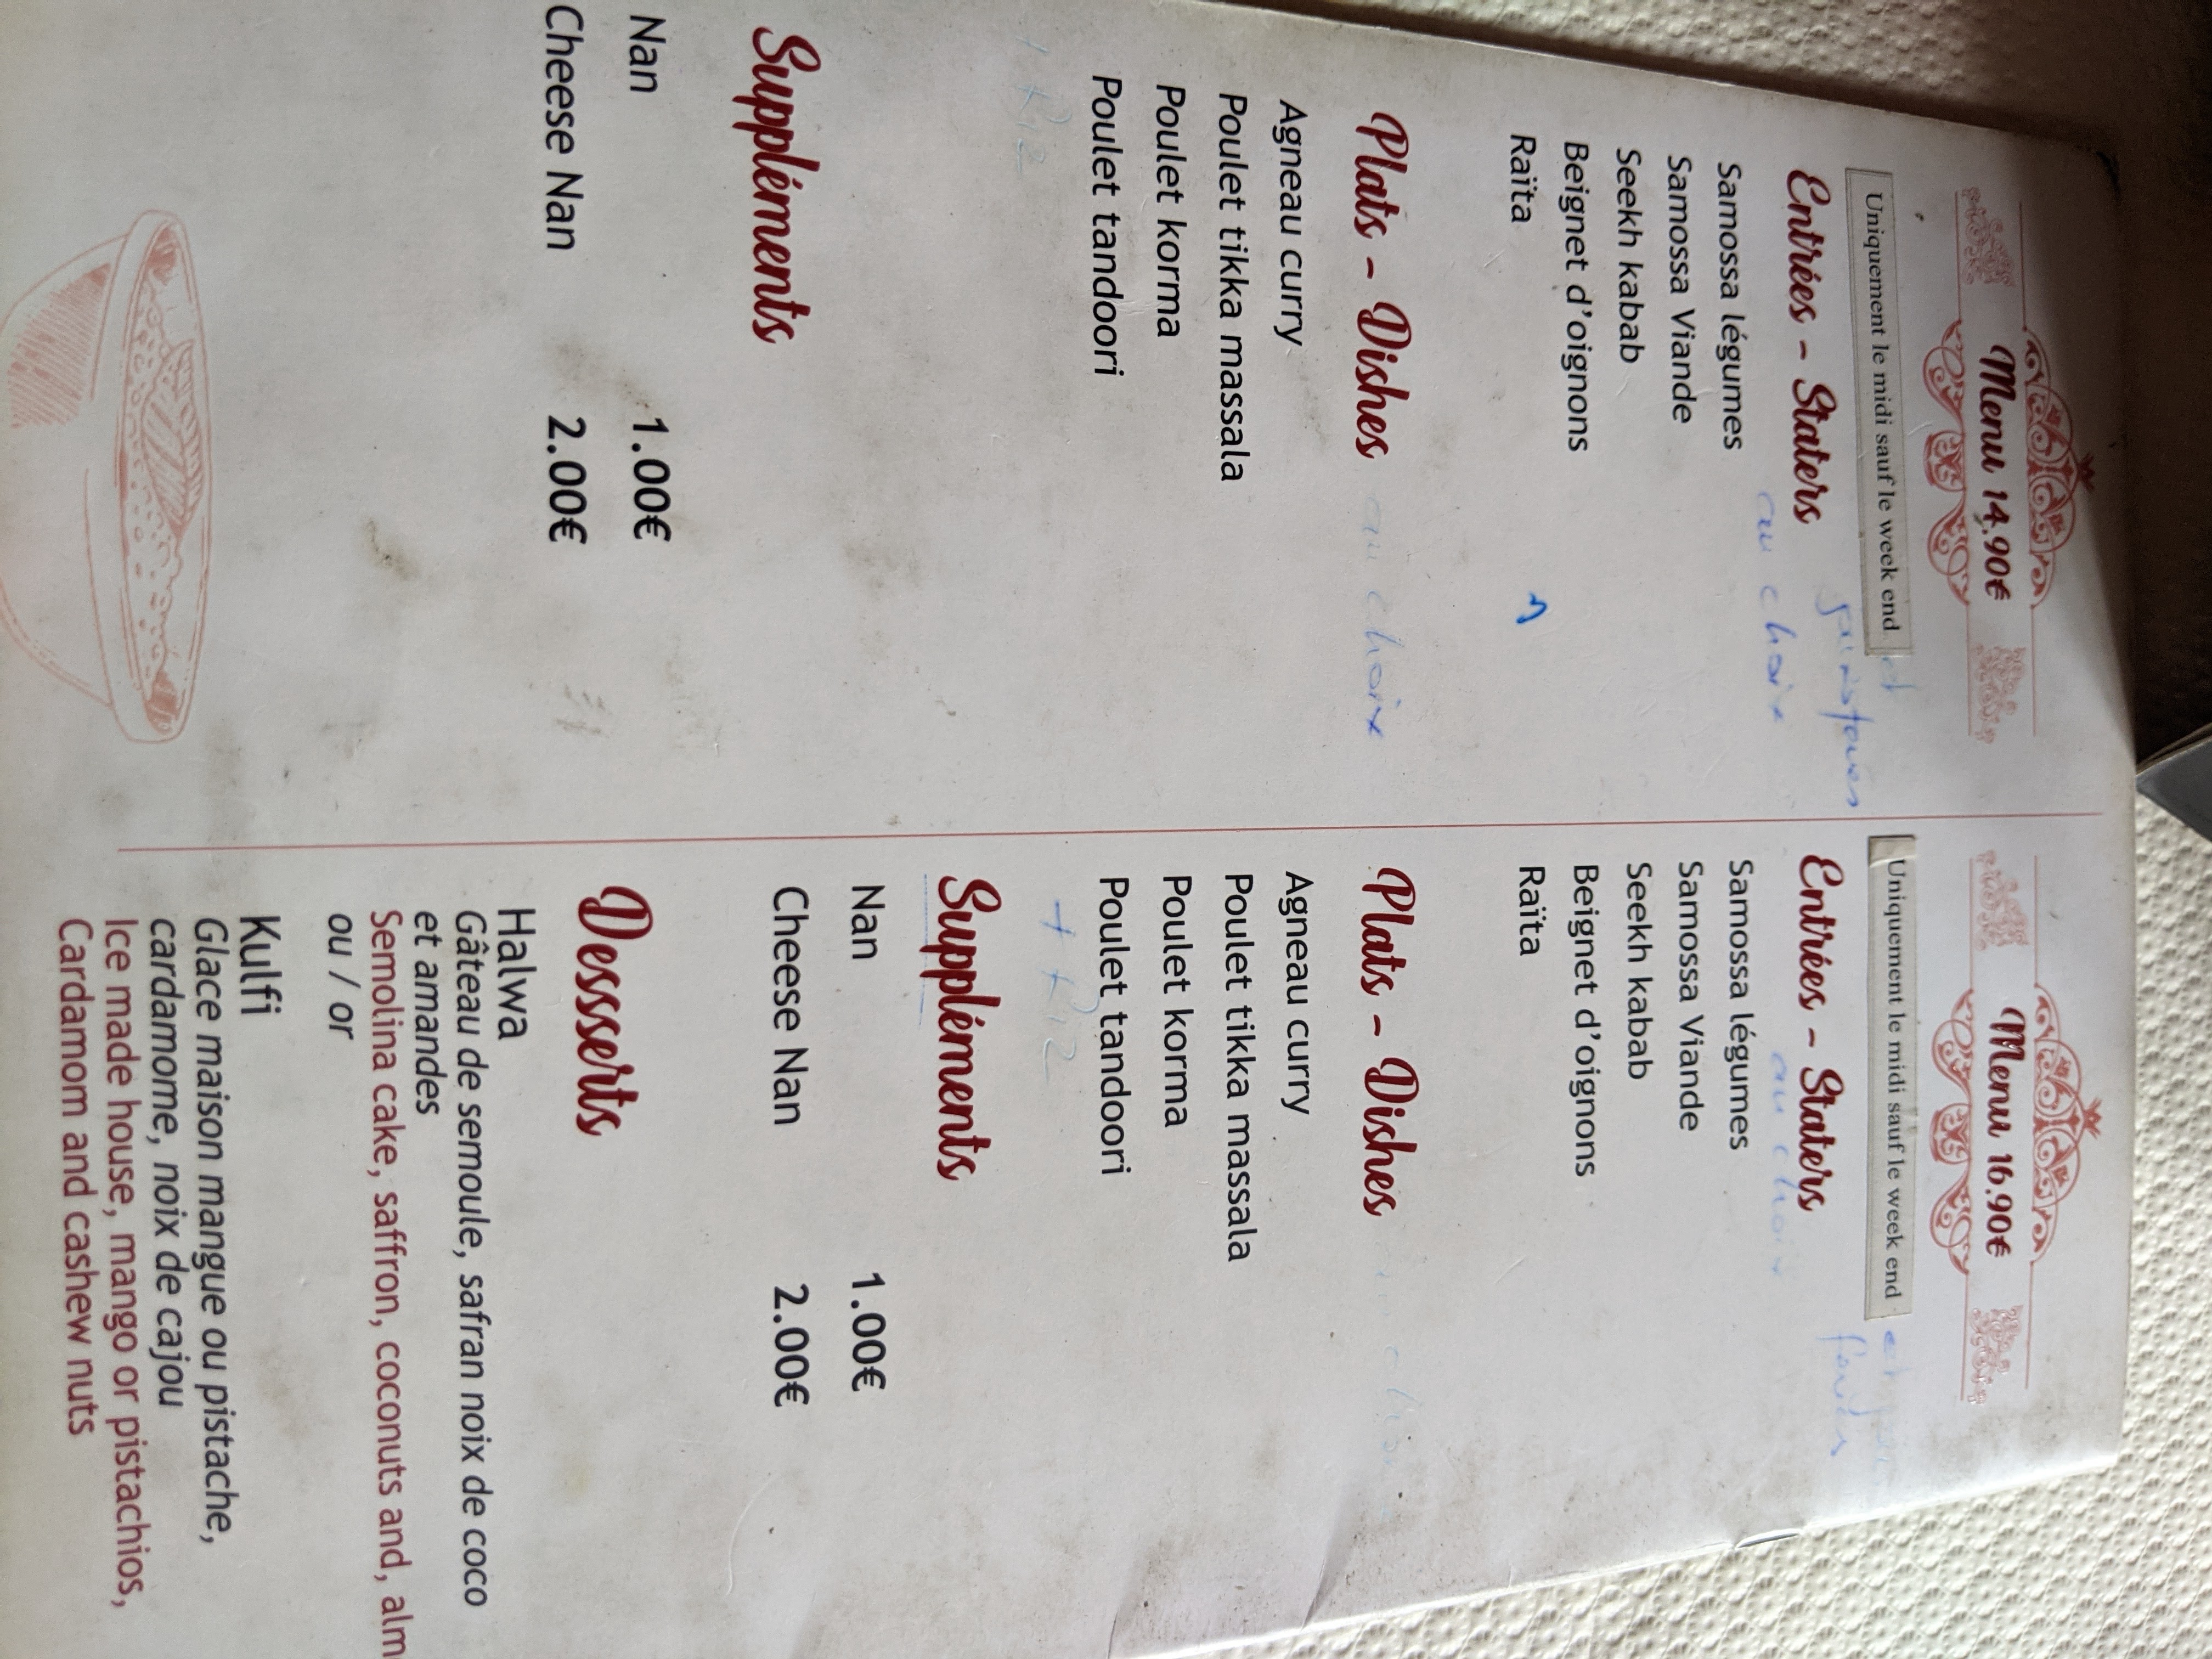 Menu 14,90€
Uniquement le midi sauf le week end
Entrées - Staters
au choix
Samossa légumes
Samossa Viande
Seekh kabab
Beignet d'oignons
Raïta
Plats - Dishes
au choix
Agneau curry
Poulet tikka massala
Poulet korma
Poulet tandoori
Suppléments
Nan 1.00€
Cheese Nan 2.00€
Menu 16.90€
Uniquement le midi sauf le week end
Entrées - Staters
au choix
Samossa légumes
Samossa Viande
Seekh kabab
Beignet d'oignons
Raïta
Plats - Dishes
Agneau curry
Poulet tikka massala
Poulet korma
Poulet tandoori
+ Riz
Suppléments
Nan 1.00€
Cheese Nan 2.00€
Desserts
Halwa
Gâteau de semoule, safran noix de coco
et amandes
Semolina cake, saffron, coconuts and, alm
ou / or
Kulfi
Glace maison mangue ou pistache,
cardamome, noix de cajou
Ice made house, mango or pistachios,
Cardamom and cashew nuts